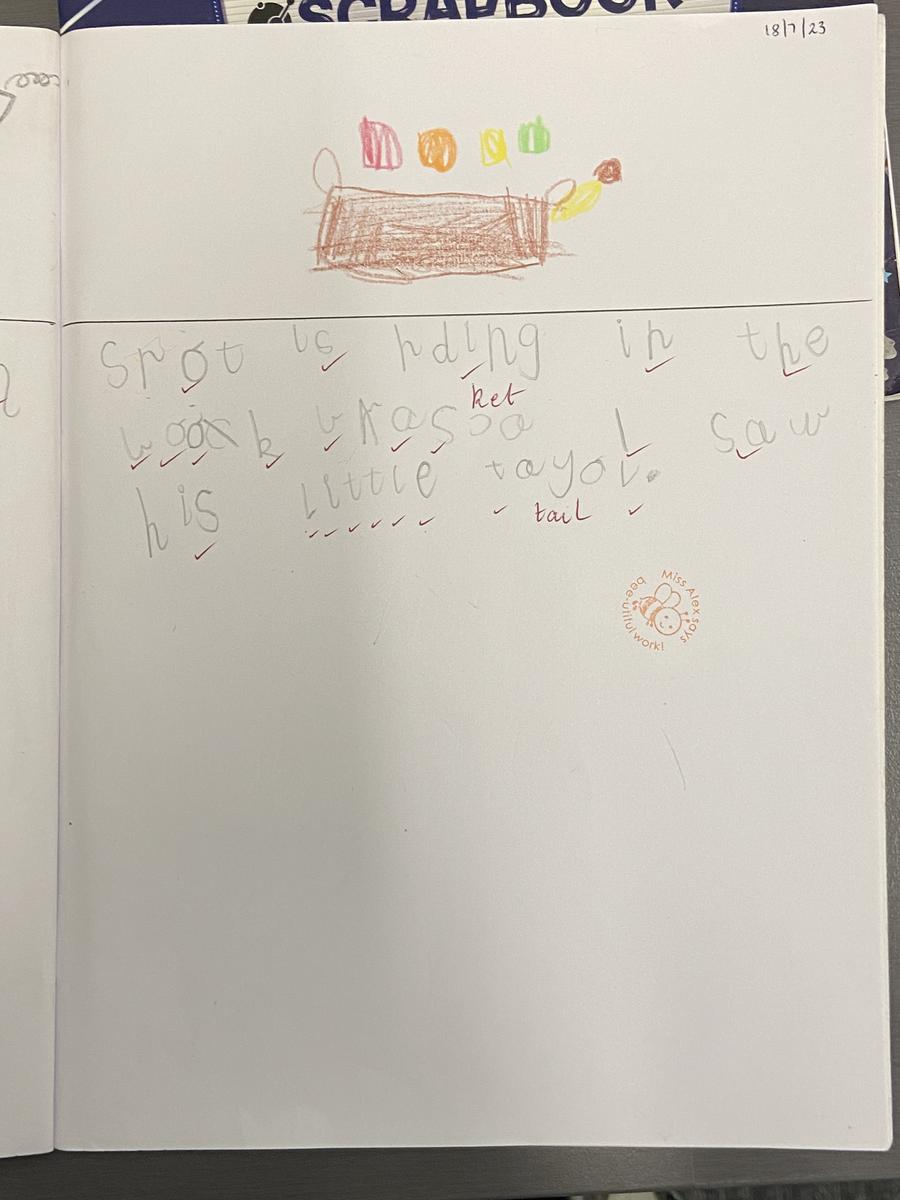 SCRAPBOOK
18/7/23
Spot is hding in the
ket
I saw
his little tayol.
tail
Miss Alex says
bee-utiful work!